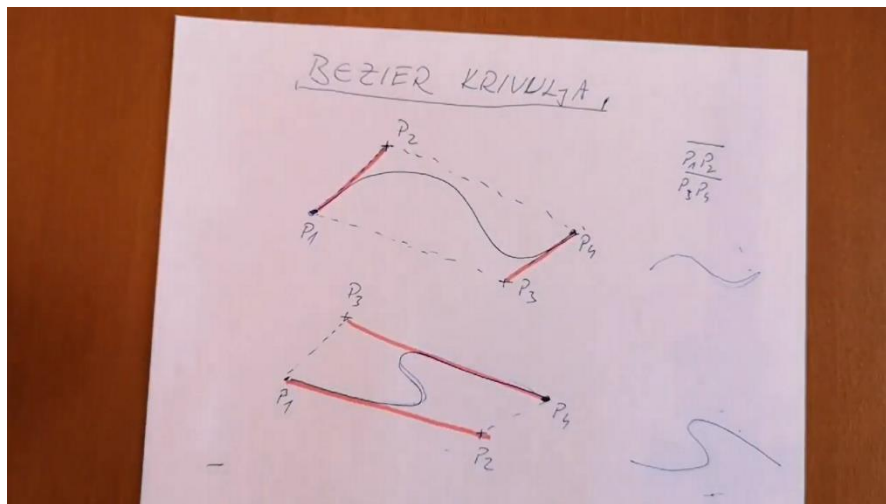 BEZIER KRIVULJA
P2
P1P2
P3P4
P1
P4
P3
P3
P1
P4
P2